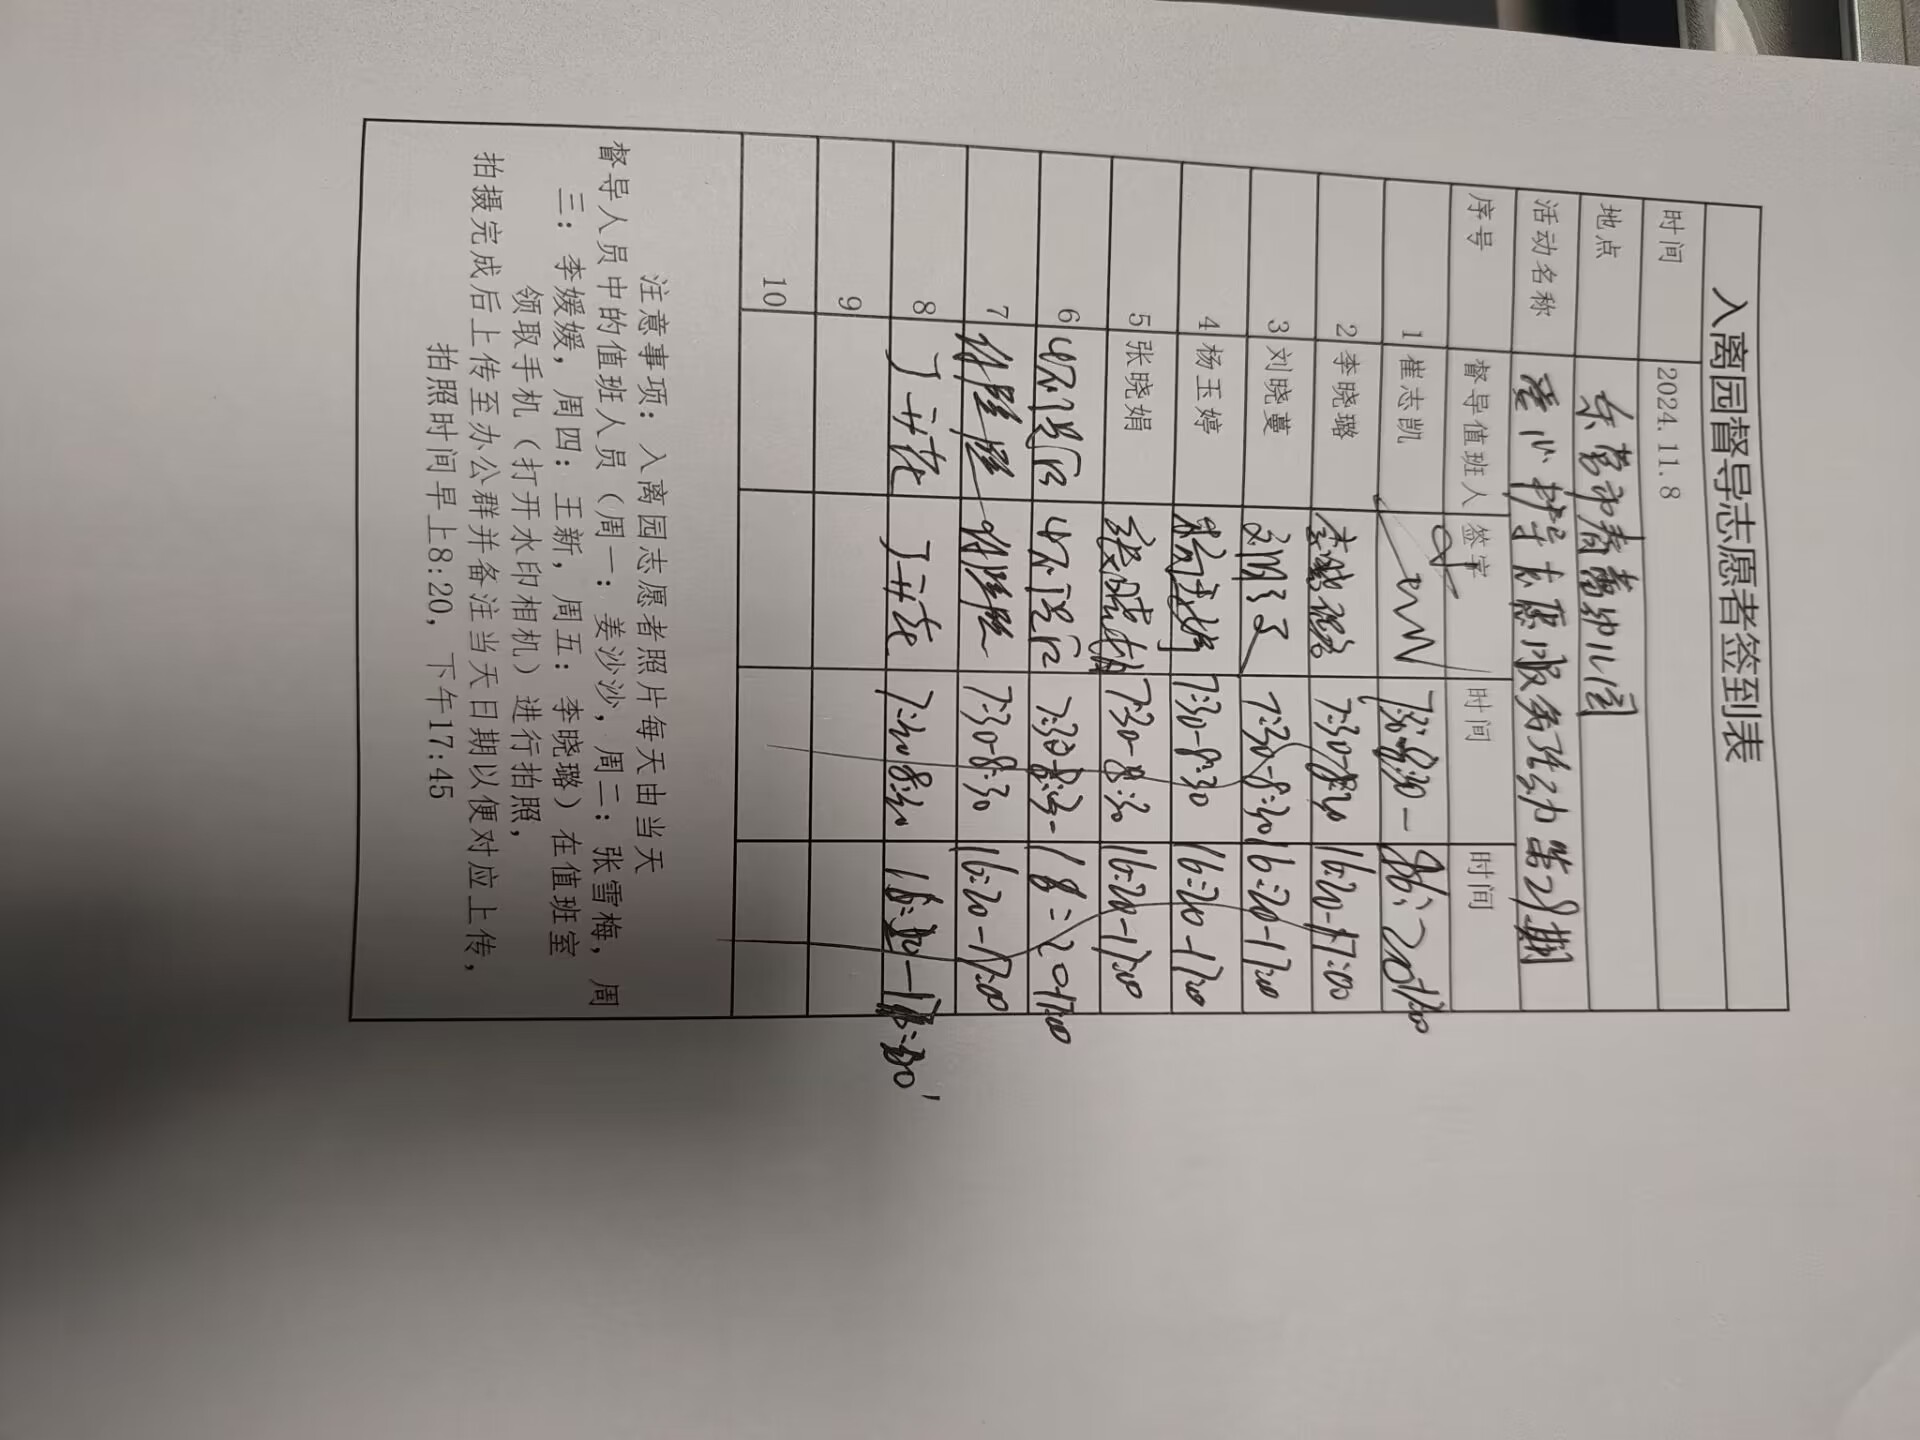 入离园督导志愿者签到表
时间 2024.11.8
地点 东营市春蕾幼儿园
活动名称 爱心护学志愿服务活动第2期
序号 督导值班人 签字 时间 时间
1 崔志凯 7:30-8:30 16:20-17:00
2 李晓璐 李晓璐 7:30-8:30 16:20-17:00
3 刘晓蔓 7:30-8:30 16:20-17:00
4 杨玉婷 杨玉婷 7:30-8:30 16:20-17:00
5 张晓娟 张晓娟 7:30-8:30 16:20-17:00
6 7:30-8:30
7 7:30-8:30 16:20-17:00
8 7:30-8:30
9
10
注意事项：入离园志愿者照片每天由当天
督导人员中的值班人员（周一：姜沙沙，周二：张雪梅，周
三：李媛媛，周四：王新，周五：李晓璐）在值班室
领取手机（打开水印相机）进行拍照，
拍摄完成后上传至办公群并备注当天日期以便对应上传，
拍照时间早上8:20，下午17:45